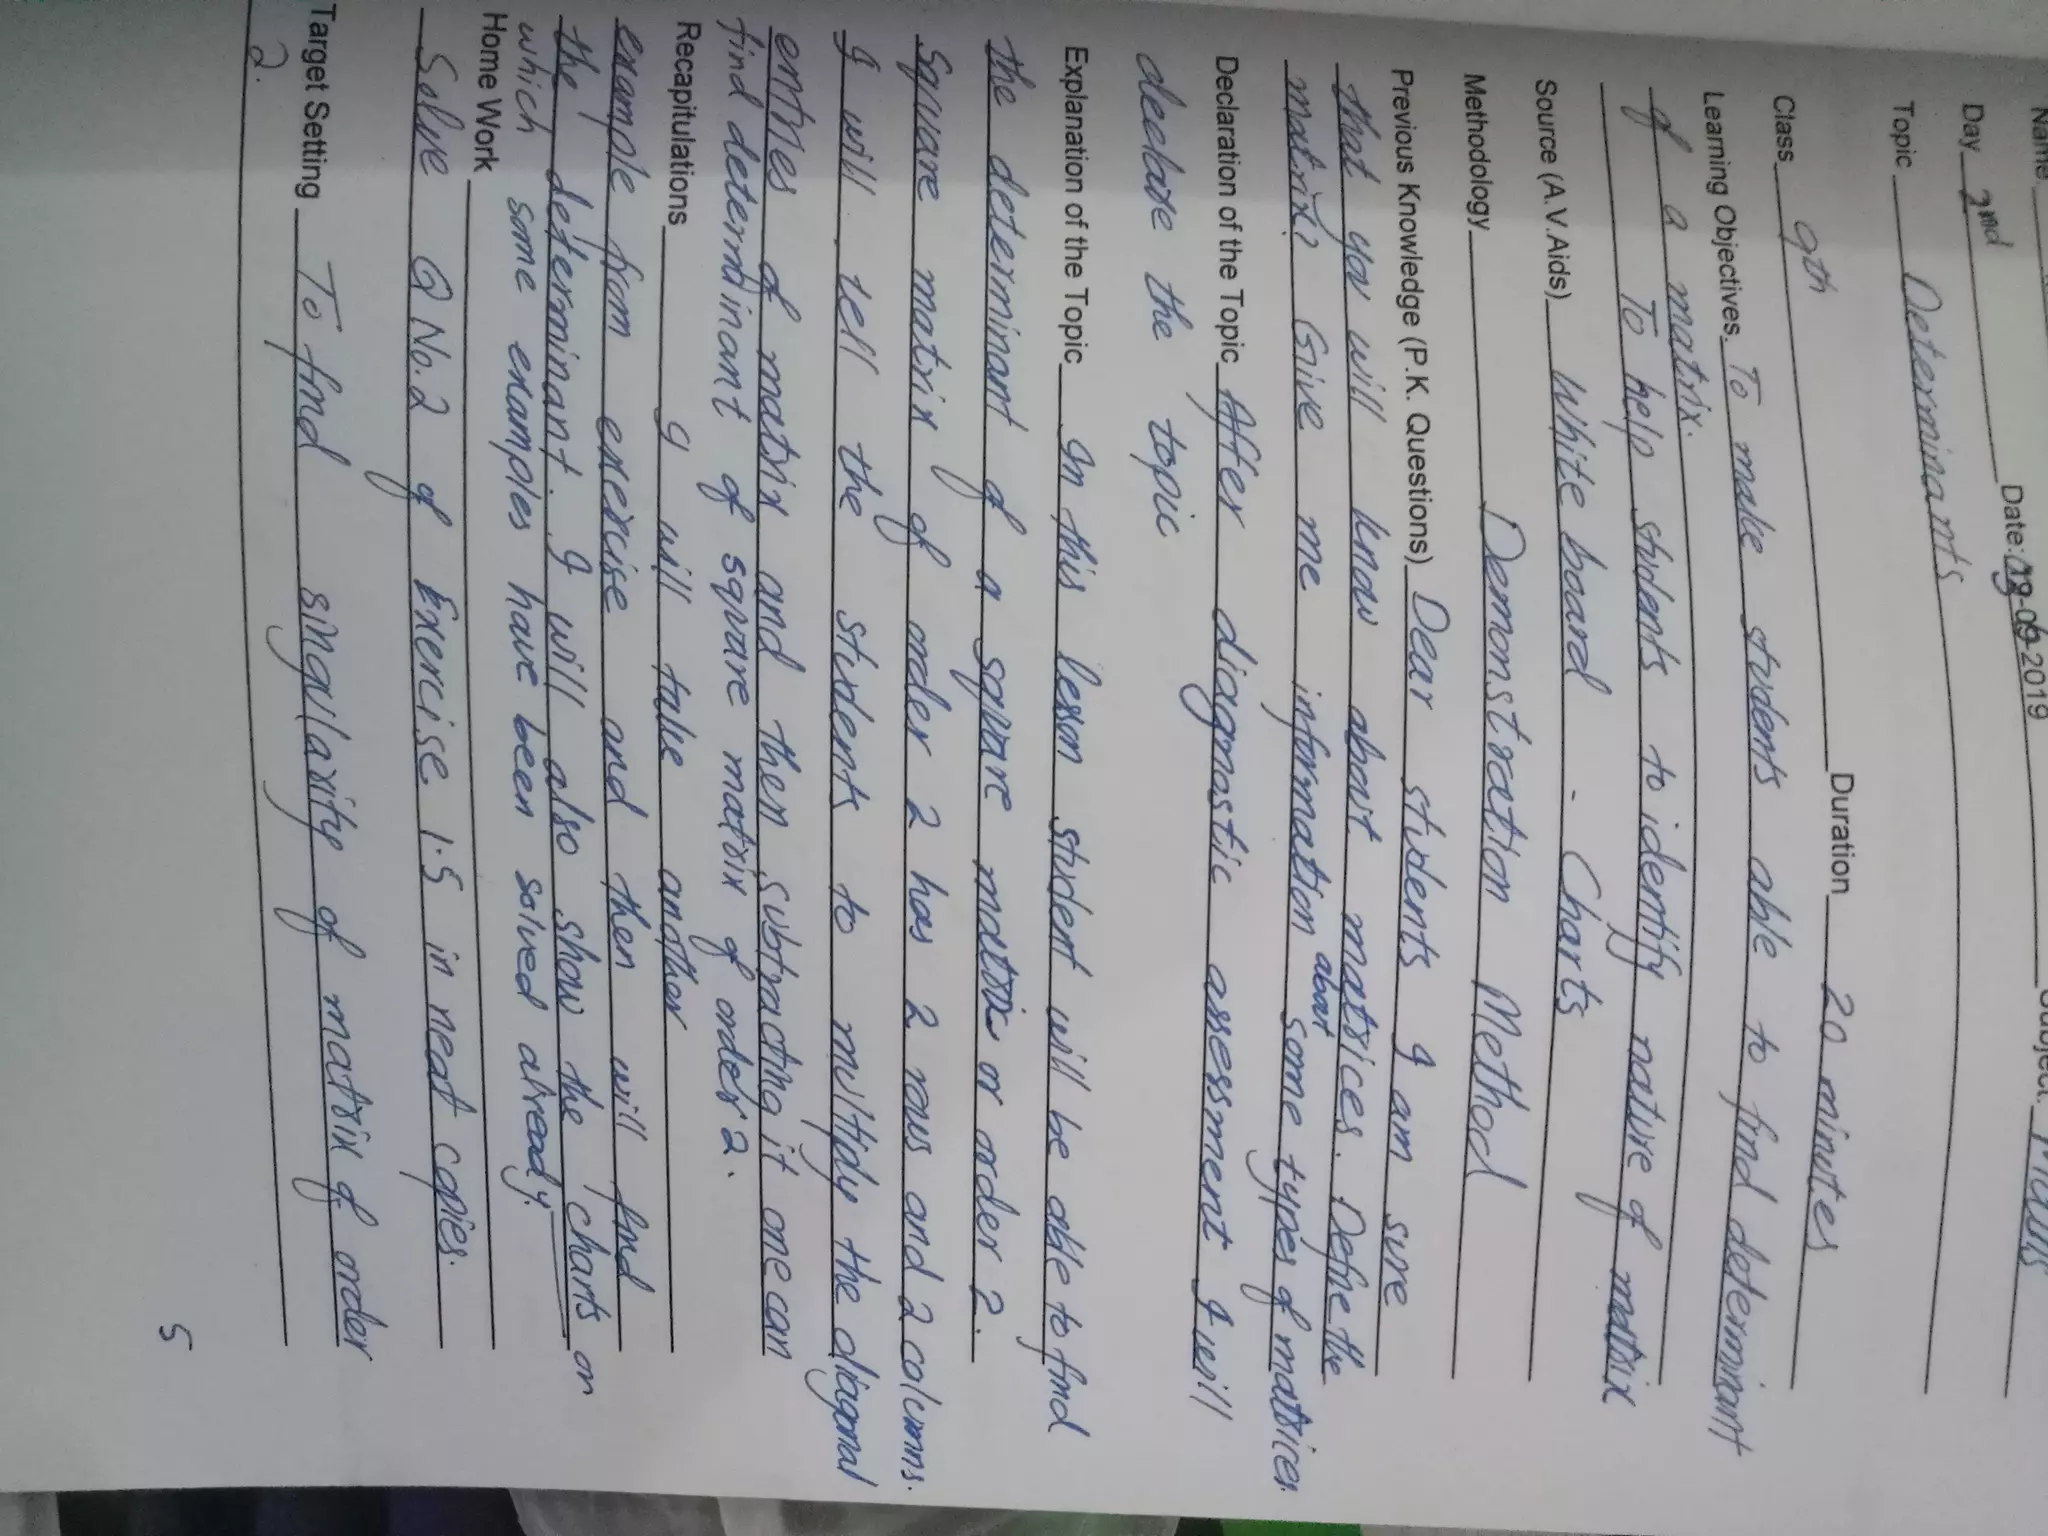 Name
Subject. Maths
Day 2nd Date: 09-2019
Topic Determinants
Class 9th Duration 20 minutes
Learning Objectives. To make students able to find determinant
of a matrix.
To help students to identify nature of matrix
Source (A.V.Aids) White board - Charts
Methodology Demonstration Method
Previous Knowledge (P.K. Questions) Dear students I am sure
that you will know about matrices. Define the
matrix? Give me information about some types of matrices.
Declaration of the Topic After diagnostic assessment I will
declare the topic
Explanation of the Topic In this lesson student will be able to find
the determinant of a square matrix or order 2.
Square matrix of order 2 has 2 rows and 2 columns.
I will tell the students to multiply the diagonal
entries of matrix and then subtracting it one can
find determinant of square matrix of order 2.
Recapitulations I will take another
example from exercise and then will find
the determinant. I will also show the charts on
which some examples have been solved already.
Home Work
Solve Q No.2 of Exercise 1.5 in neat copies.
Target Setting To find singullarity of matrix of order
2.
5